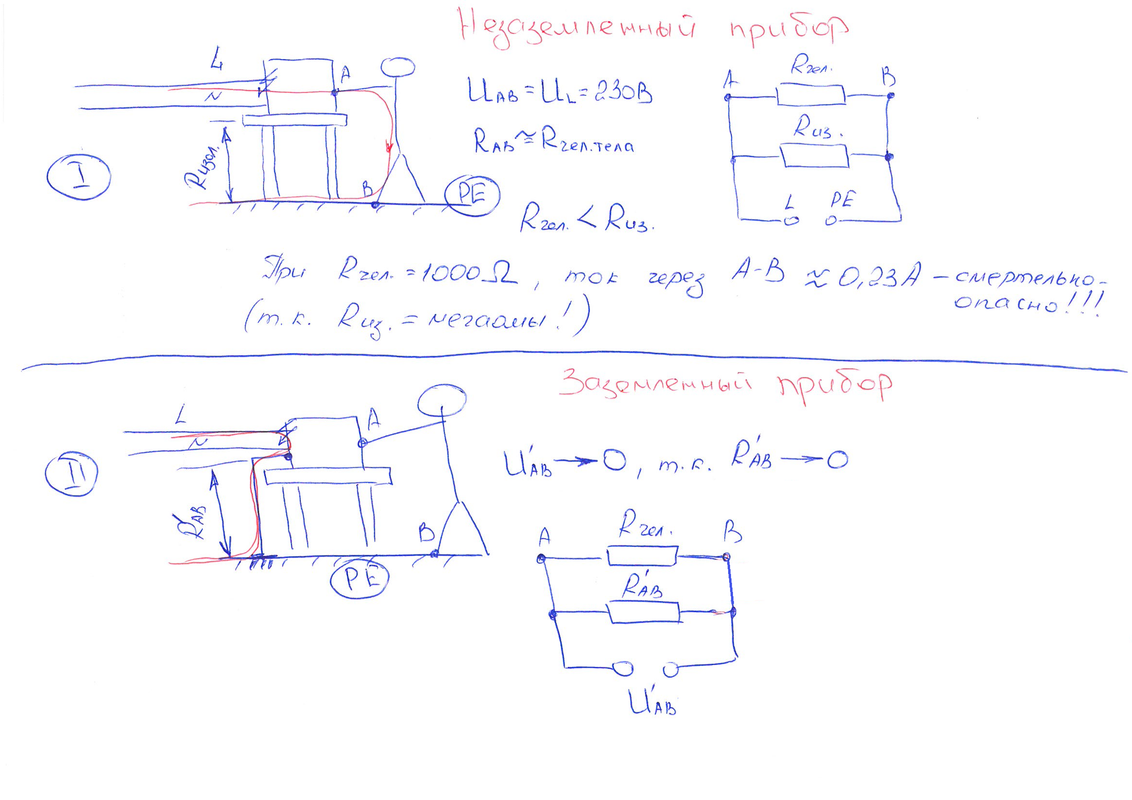 Незаземленный прибор
L
N
A
Rизол.
B
PE
I
UAB = UL = 230В
RAB ≅ Rчел.тела
Rчел. < Rиз.
A
Rчел.
B
Rиз.
L PE
При Rчел. = 1000Ω, ток через A-B ≈ 0,23А – смертельно-
опасно!!!
(т.к. Rиз. = мегаомы!)
Заземленный прибор
L
N
A
II
R'AB
B
PE
U'AB → 0, т.к. R'AB → 0
A
Rчел.
B
R'AB
U'AB